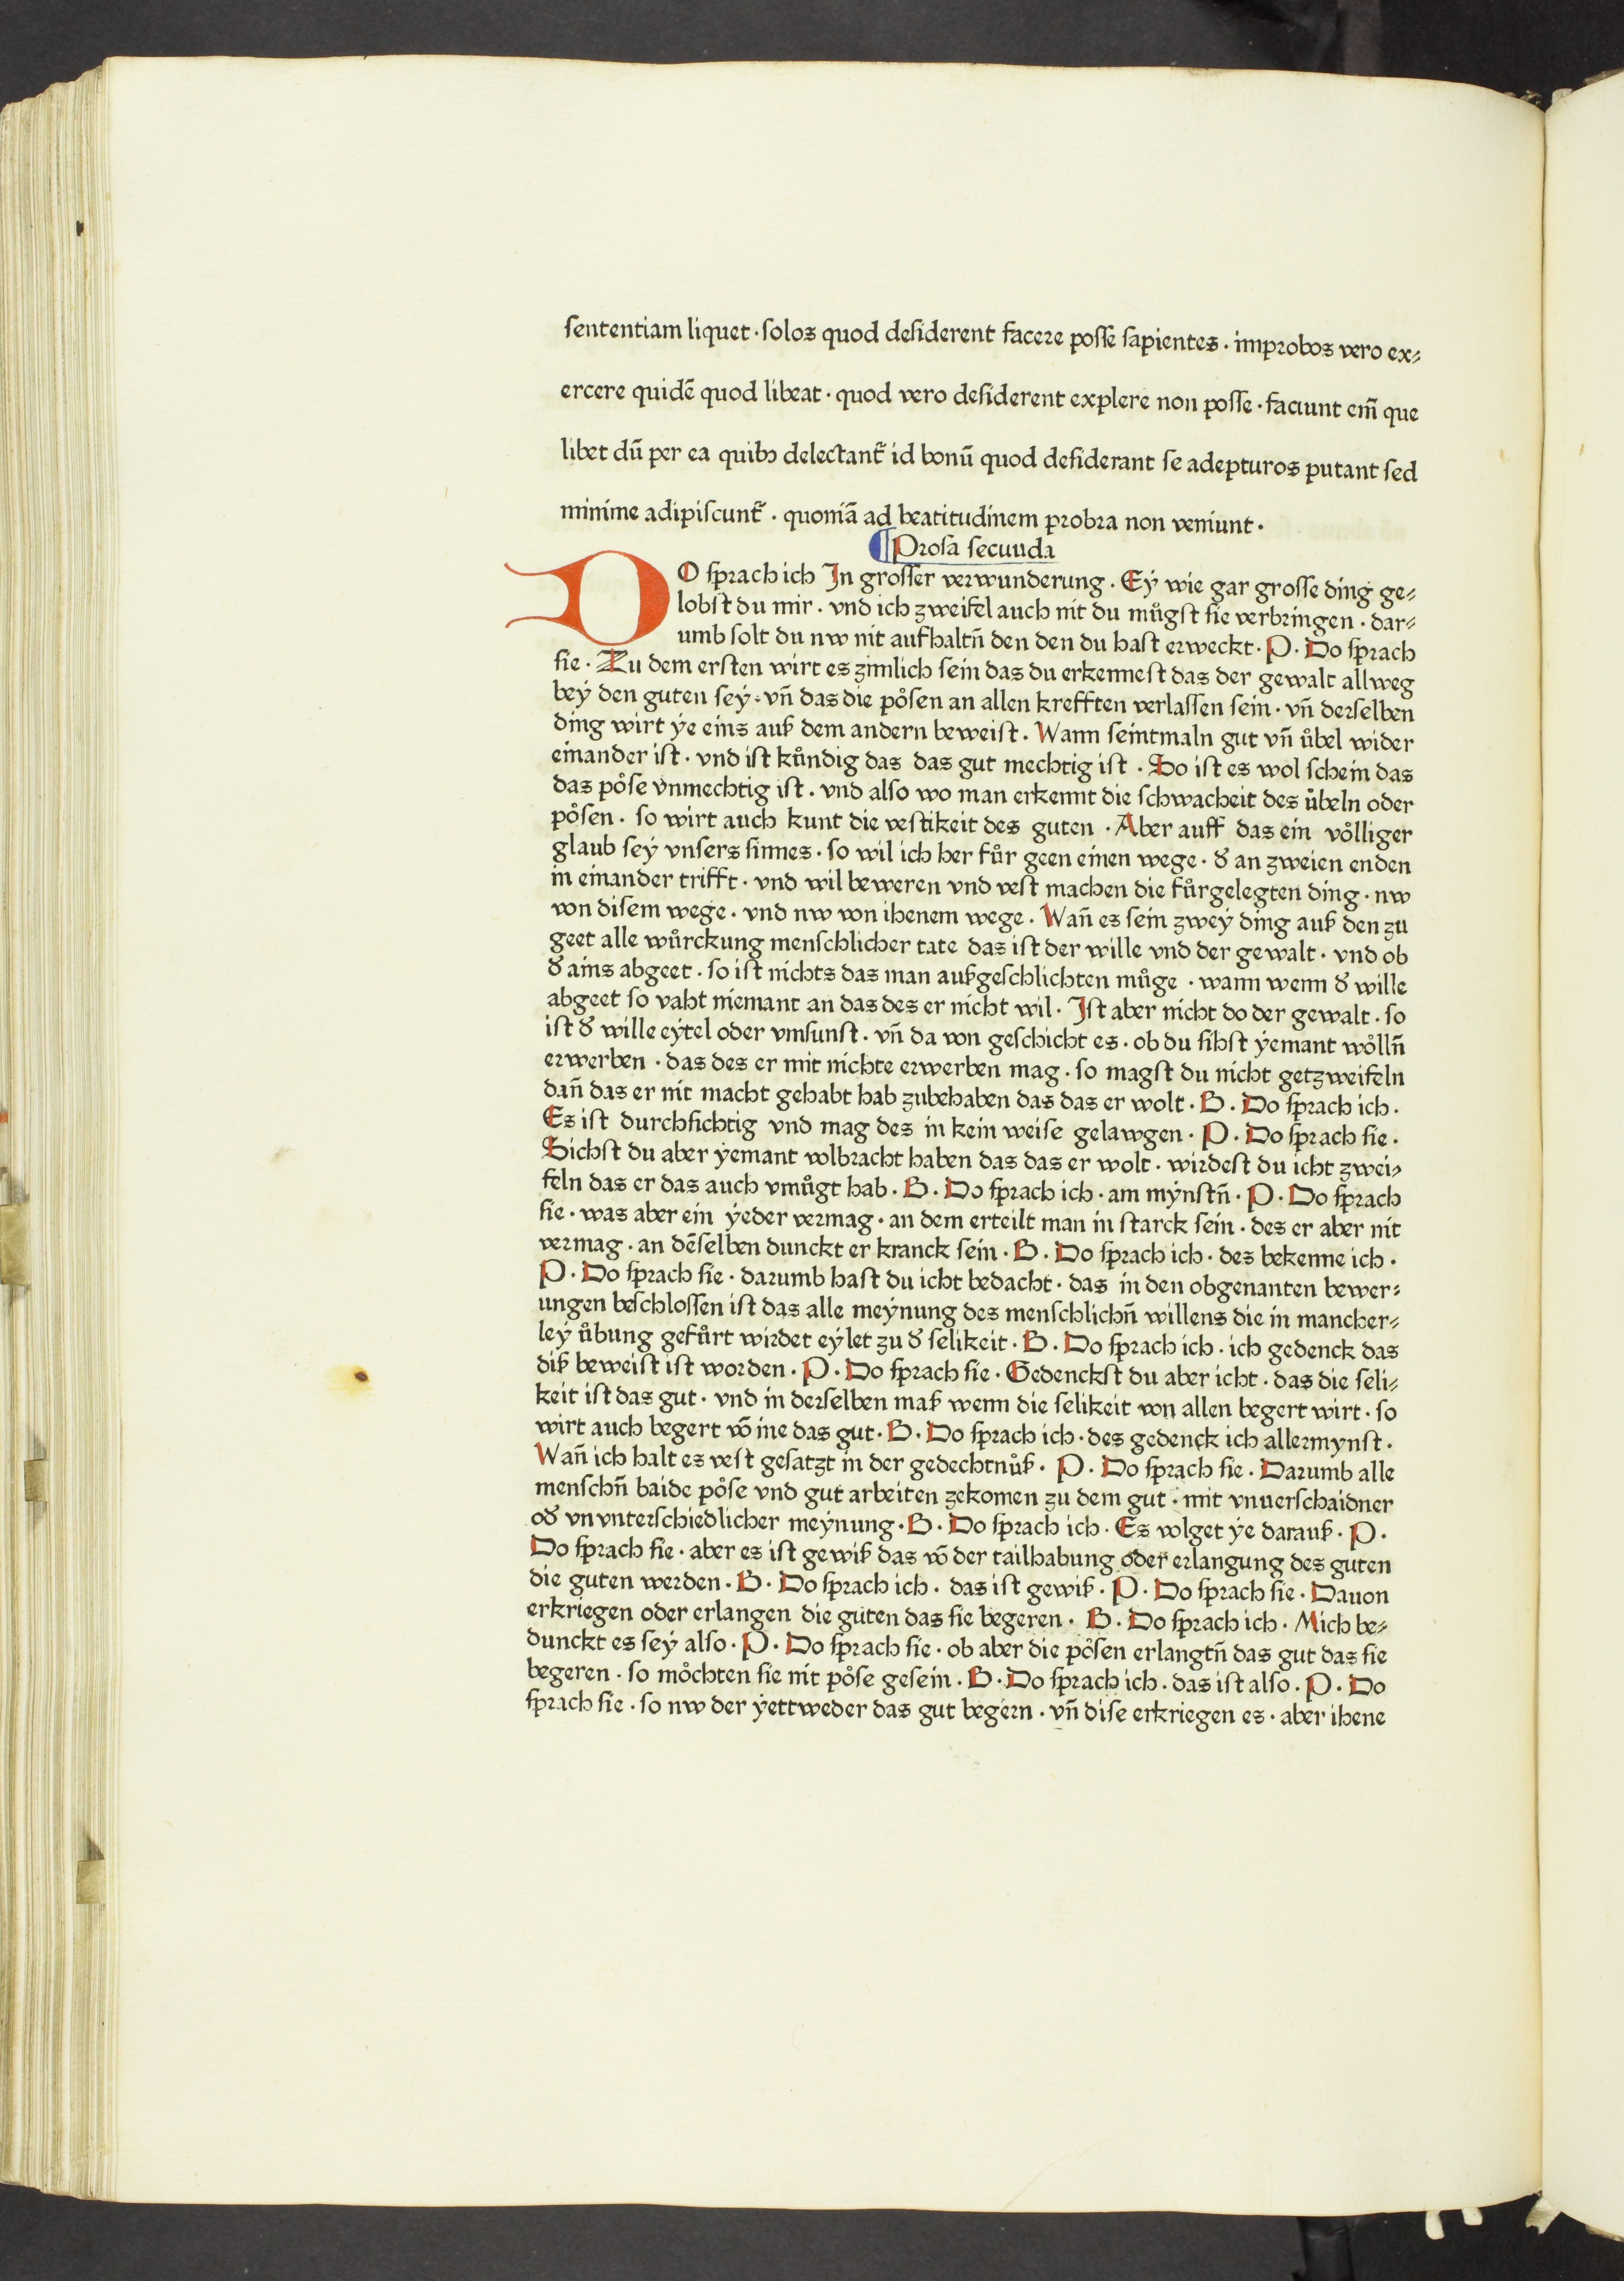 sententiam liquet · solos quod desiderent facere posse sapientes · improbos vero ex⸗
ercere quidē quod libeat · quod vero desiderent explere non posse · faciunt em̄ que
libet dū per ea quibꝫ delectant᷑ id bonū quod desiderant se adepturos putant sed
minime adipiscunt᷑ · quoniā ad beatitudinem probra non veniunt ·
¶ Prosa secuuda
DO sprach ich In grosser verwunderung · Eÿ wie gar grosse ding ge⸗
lobst du mir · vnd ich zweifel auch nit du můgst sie verbringen · dar⸗
umb solt du nw nit aufhaltn̄ den den du hast erweckt · P · Do sprach
sie · Zu dem ersten wirt es zimlich sein das du erkennest das der gewalt allweg
beÿ den guten seÿ · vn̄ das die po̊sen an allen krefften verlassen sein · vn̄ derselben
ding wirt ÿe eins auß dem andern beweist · Wann seintmaln gut vn̄ ůbel wider
einander ist · vnd ist kůndig das das gut mechtig ist · So ist es wol schein das
das po̊se vnmechtig ist · vnd also wo man erkennt die schwacheit des ůbeln oder
po̊sen · so wirt auch kunt die vestikeit des guten · Aber auff das ein vo̊lliger
glaub seÿ vnsers sinnes · so wil ich her fůr geen einen wege · đ an zweien enden
in einander trifft · vnd wil beweren vnd vest machen die fůrgelegten ding · nw
von disem wege · vnd nw von ihenem wege · Wan̄ es sein zweÿ ding auß den zu
geet alle wůrckung menschlicher tate das ist der wille vnd der gewalt · vnd ob
đ ains abgeet · so ist nichts das man außgeschlichten můge · wann wenn đ wille
abgeet so vaht niemant an das des er nicht wil · Ist aber nicht do der gewalt · so
ist đ wille eÿtel oder vmsunst · vn̄ da von geschicht es · ob du sihst ÿemant wo̊lln̄
erwerben · das des er mit nichte erwerben mag · so magst du nicht getzweifeln
dan̄ das er nit macht gehabt hab zubehaben das das er wolt · B · Do sprach ich ·
Es ist durchsichtig vnd mag des in kein weise gelawgen · P · Do sprach sie ·
Sichst du aber ÿemant volbracht haben das das er wolt · wirdest du icht zwei⸗
feln das er das auch vmůgt hab · B · Do sprach ich · am mÿnstn̄ · P · Do sprach
sie · was aber ein ÿeder vermag · an dem erteilt man in starck sein · des er aber nit
vermag · an dēselben dunckt er kranck sein · B · Do sprach ich · des bekenne ich ·
P · Do sprach sie · darumb hast du icht bedacht · das in den obgenanten bewer⸗
ungen beschlossen ist das alle meÿnung des menschlichn̄ willens die in mancher⸗
leÿ ůbung gefůrt wirdet eÿlet zu đ selikeit · B · Do sprach ich · ich gedenck das
diß beweist ist worden · P · Do sprach sie · Gedenckst du aber icht · das die seli⸗
keit ist das gut · vnd in derselben maß wenn die selikeit von allen begert wirt · so
wirt auch begert vō ine das gut · B · Do sprach ich · des gedenck ich allermynst ·
Wan̄ ich halt es vest gesatzt in der gedechtnůß · P · Do sprach sie · Darumb alle
menschn̄ baide po̊se vnd gut arbeiten zekomen zu dem gut · mit vnuerschaidner
ođ vnvnterschiedlicher meÿnung · B · Do sprach ich · Es volget ÿe darauß · P ·
Do sprach sie · aber es ist gewiß das vō der tailhabung oder erlangung des guten
die guten werden · B · Do sprach ich · das ist gewiß · P · Do sprach sie · Dauon
erkriegen oder erlangen die guten das sie begeren · B · Do sprach ich · Mich be⸗
dunckt es seÿ also · P · Do sprach sie · ob aber die po̊sen erlangtn̄ das gut das sie
begeren · so mo̊chten sie nit po̊se gesein · B · Do sprach ich · das ist also · P · Do
sprach sie · so nw der ÿettweder das gut begern · vn̄ dise erkriegen es · aber ihene